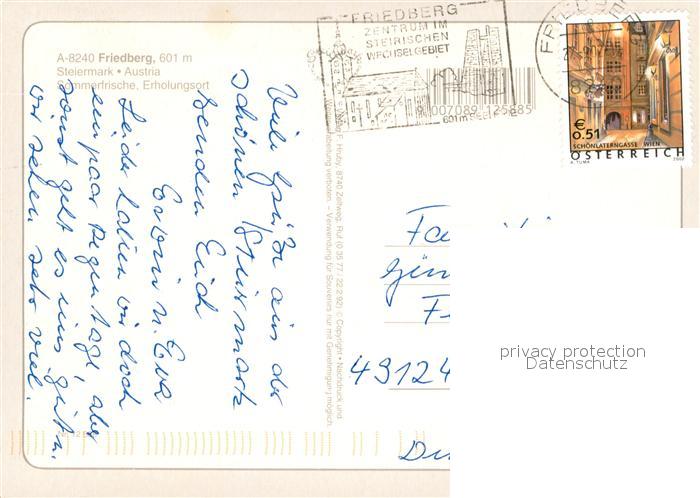 A-8240 Friedberg, 601 m
Steiermark • Austria
Sommerfrische, Erholungsort
FRIEDBERG
ZENTRUM IM
STEIRISCHEN
WECHSELGEBIET
601m Seehöhe
9 007089 125685
€ 0.51
SCHÖNLATERNGASSE WIEN
ÖSTERREICH
A. TUMA
2002
Viele Grüße aus der
schönen Steiermark
senden Euch
Erwin u. Eva
Leider haben wir doch
ein paar Regentage, aber
sonst geht es uns gut u.
wir sehen sehr viel.
F. Hruby, 8740 Zeltweg, Ruf (0 35 77 / 22 2 92) © Copyright • Nachdruck und
verboten. – Verwendung für Souvenirs nur mit Genehmigung möglich.
49124
privacy protection
Datenschutz